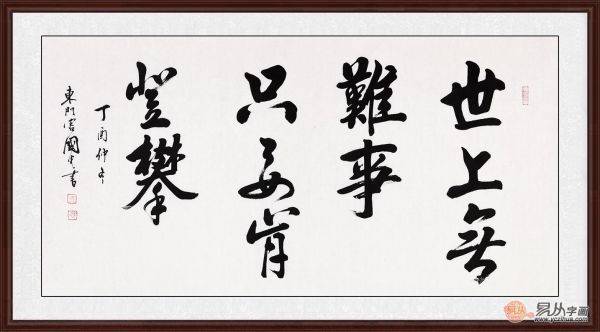 世上無
難事
只要肯
登攀
丁酉仲冬
東門國書
易从字画
www.yczihua.com